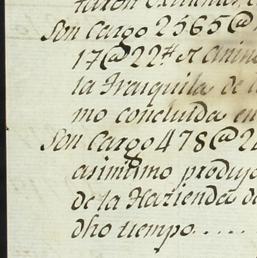 Son Cargo 2565@
17@22 tt
la Fraiguila de
mo concluida en
Son Cargo 478@2
asimismo produjo
de la Hazienda de
dho tiempo.....